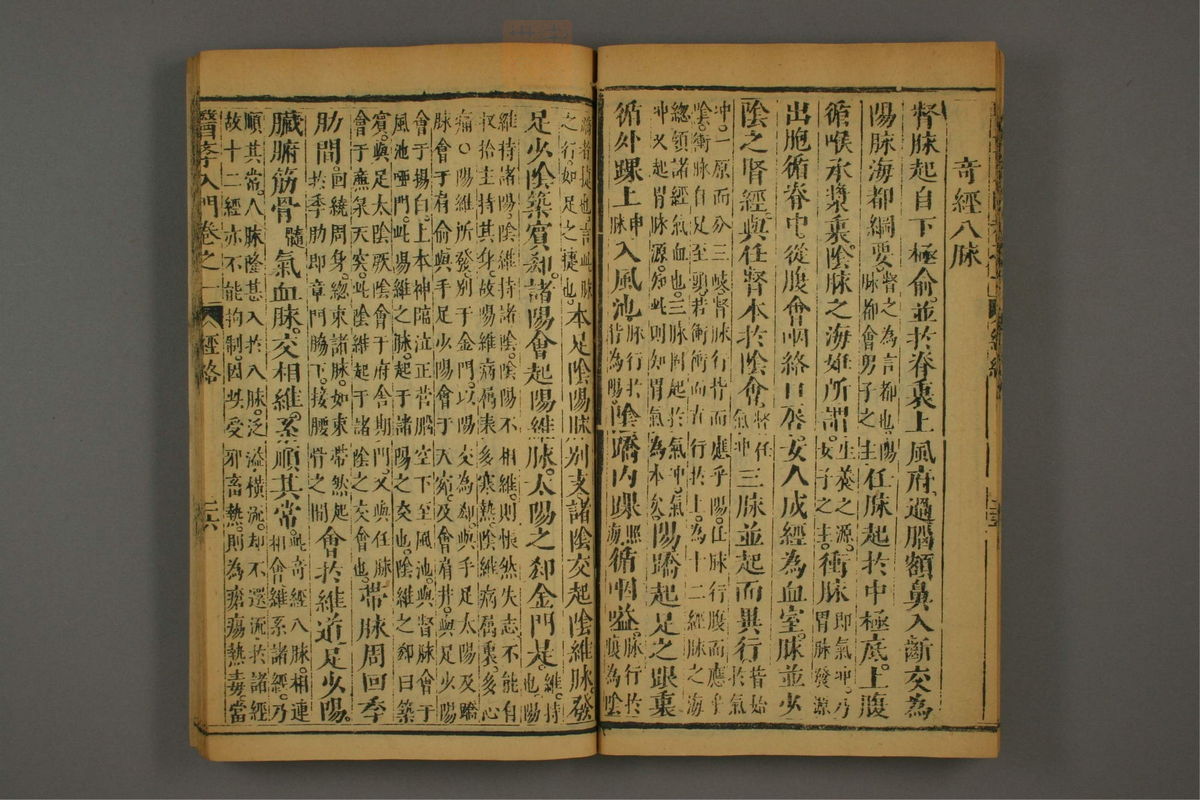 奇經八脉
督脉起自下極俞並於脊裏上風府過腦額鼻入齗交為
陽脉海都綱要督之為言都也陽脉都會男子之主任脉起於中極底上腹
循喉承漿裏陰脉之海妊所謂生養之源女子之主衝脉即氣冲乃胃脉發源
出胞循脊中從腹會咽絡口唇女人成經為血室脉並少
陰之腎經與任督本於陰會督任氣冲三脉並起而異行皆始於氣
冲一原而分三岐督脉行背而應乎陽任脉行腹而應乎
陰衝脉自足至頭若衝衝而直行於上為十二經脉之海
總領諸經氣血也三脉因起於氣冲氣
冲又起胃脉源知此則知胃氣為本矣陽蹻起足之跟裏
循外踝上申脉入風池脉行於背為陽陰蹻內踝照海循咽嗌脉行於腹為陰
蹻者捷也言此脉之行如足之捷也本足陰陽脉別支諸陰交起陰維脉發
足少陰築賓郄諸陽會起陽維脉太陽之郄金門是維持也陽
維持諸陽陰維持諸陰陰陽不相維則悵然失志不能自
收拾主持其身故陽維病屬表多寒熱陰維病屬裏多心
痛○陽維所發別于金門以陽交為郄與手足太陽及蹻
脉會于肩俞與手足少陽會于天窌及會肩井與足少陽
會于揚白上本神臨泣正營腦空下至風池與督脉會于
風池啞門此陽維之脉起于諸陽之交也陰維之郄曰築
賓與足太陰厥陰會于府舍期門又與任脉
會于廉泉天突此陰維起于諸陰之交會也帶脉周回季
肋間回繞周身總束諸脉如束帶然起於季肋即章門脇下接腰骨之間會於維道足少陽
臟腑筋骨髓氣血脉交相維系順其常此奇經八脉相連相會維系諸經乃
順其常八脉隆甚入於八脉泛溢橫流却不還流於諸經
故十二經亦不能拘制因此受邪畜熱則為瘡瘍熱毒當
醫學入門卷之一 經絡 二六